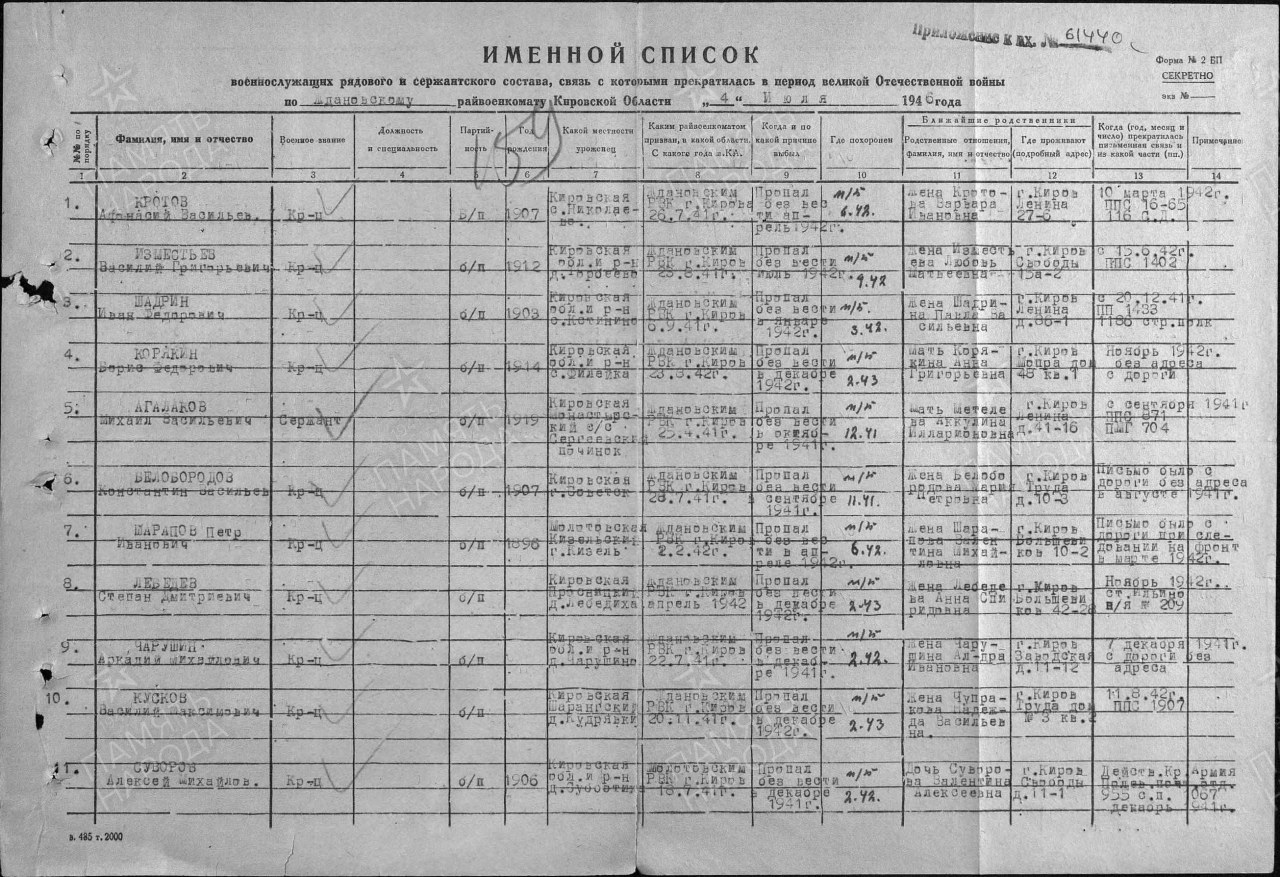 Приложение к вх. № 61440
Форма № 2 БП
СЕКРЕТНО
экз №
ИМЕННОЙ СПИСОК
военнослужащих рядового и сержантского состава, связь с которыми прекратилась в период великой Отечественной войны
по Ждановскому райвоенкомату Кировской Области „4“ Июля 1946 года
159
№№ по порядку
Фамилия, имя и отчество
Военное звание
Должность и специальность
Партийность
Год рождения
Какой местности уроженец
Каким райвоенкоматом призван, в какой области. С какого года в.КА.
Когда и по какой причине выбыл
Где похоронен
Ближайшие родственники
Родственные отношения, фамилия, имя и отчество
Где проживают (подробный адрес)
Когда (год, месяц и число) прекратилась письменная связь и из какой части (пп.)
Примечание
1 2 3 4 5 6 7 8 9 10 11 12 13 14
1. КРОТОВ Афанасий Васильев. Кр-ц б/п 1907 Кировская с.Николаево. Ждановским РВК г.Кирова 26.7.41г. Пропал без вести апрель 1942г. п/б 6.42. Жена Кротова Варвара Ивановна г.Киров Ленина 27-6 10 марта 1942г. ППС 16-65 116 С.Д.
2. ИЗМЕСТЬЕВ Василий Григорьевич Кр-ц б/п 1912 Кировская обл.и р-н Ждановским РВК г.Киров 23.8.41г. Пропал без вести Июль 1942г. п/б 9.42 Жена Изместьева Любовь Матвеевна г.Киров Свободы 15а-2 с 15.6.42г. ППС 1402
3. ШАДРИН Иван Федорович Кр-ц б/п 1903 Кировская обл.и р-н с.Костинино Ждановским РВК г.Киров 6.9.41г. Пропал без вести в Январе 1942г. п/б 3.42. Жена Шадрина Павла Васильевна г.Киров Ленина д.86-1 с 20.12.41г. ПП 1433 1186 стр.полк
4. КОРЯКИН Борис Федорович Кр-ц б/п 1914 Кировская обл.и р-н с.Филейка Ждановским РВК г.Киров 23.8.42г. Пропал без вести в декабре 1942г. п/б 2.43 Мать Корякина Анна Григорьевна г.Киров дом 48 кв.1 Ноябрь 1942г. без адреса с дороги
5. АГАЛАКОВ Михаил Васильевич Сержант б/п 1919 Кировская Монастырский с/с Сергаевский починок Ждановским РВК г.Киров 25.4.41г. Пропал без вести в октябре 1941г. п/б 12.41 Мать Метелева Аккулина Илларионовна г.Киров Ленина д.41-16 с сентября 1941г ППС 871 ПМГ 704
6. БЕЛОБОРОДОВ Константин Васильев Кр-ц б/п 1907 Кировская г.Советск Ждановским РВК г.Киров 28.7.41г. Пропал без вести в сентябре 1941г. п/б 11.41. Жена Белобородова Мария Петровна г.Киров Труда д.10-3 Письмо было с дороги без адреса в августе 1941г.
7. ШАРАПОВ Петр Иванович Кр-ц б/п 1896 Молотовская Кизельский г.Кизель Ждановским РВК г.Киров 2.2.42г. Пропал без вести в апреле 1942г. п/б 6.42. Жена Шарапова Валентина Михайловна г.Киров Большевиков 10-2 Письмо было с дороги при следовании на фронт в марте 1942г.
8. ЛЕБЕДЕВ Степан Дмитриевич Кр-ц б/п Кировская Просницкий д.Лебедиха Ждановским РВК г.Киров апрель 1942 Пропал без вести в декабре 1942г. п/б 2.43 Жена Лебедева Анна Спиридовна г.Киров Большевиков 42-28 Ноябрь 1942г. ст.Ильино п/я № 209
9. ЧАРУШИН Аркадий Михайлович Кр-ц б/п Кировская обл.и р-н д.Чарушино Ждановским РВК г.Киров 22.7.41г. Пропал без вести в декабре 1941г. п/б 2.42. Жена Чарушина Ал-дра Ивановна г.Киров Заводская д.11-12 7 декабря 1941г. с дороги без адреса
10. КУСКОВ Василий Максимович Кр-ц б/п Кировская Шарангский д.Кудрявки Ждановским РВК г.Киров 20.11.41г. Пропал без вести в декабре 1942г. п/б 2.43 Жена Чупракова Надежда Васильевна. г.Киров Труда дом № 3 кв.2 11.8.42г. ППС 1907
11. СУВОРОВ Алексей Михайлов. Кр-ц б/п 1906 Кировская обл.и р-н д.Субботиха Молотовским РВК г.Киров 18.7.41г. Пропал без вести в декабре 1941г. п/б 2.42. Дочь Суворова Валентина Алексеевна г.Киров Свободы д.11-1 Действ.Кр.Армия 955 с.п. декабрь 1941г.
в. 485 т. 2000
ПАМЯТЬ НАРОДА